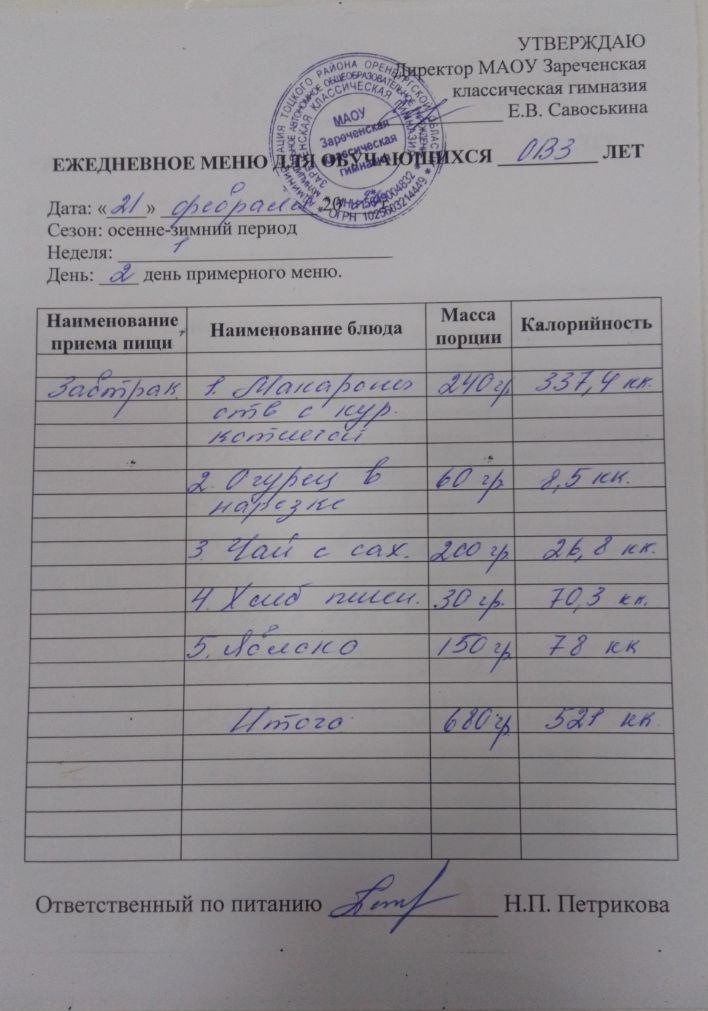 УТВЕРЖДАЮ
Директор МАОУ Зареченская
классическая гимназия
Е.В. Савоськина
МАОУ
Зареченская
классическая
гимназия
ЕЖЕДНЕВНОЕ МЕНЮ ДЛЯ ОБУЧАЮЩИХСЯ ОВЗ ЛЕТ
Дата: «21» февраля 20
Сезон: осенне-зимний период
Неделя: 1
День: 2 день примерного меню.
Наименование приема пищи Наименование блюда Масса порции Калорийность
Завтрак 1. Макароны 240 гр 337,4 кк.
отв с кур.
котлетой
2. Огурец в 60 гр 8,5 кк.
нарезке
3. Чай с сах. 200 гр 26,8 кк.
4. Хлеб пшен. 30 гр. 70,3 кк.
5. Яблоко 150 гр 78 кк
Итого 680 гр 521 кк.
Ответственный по питанию Н.П. Петрикова